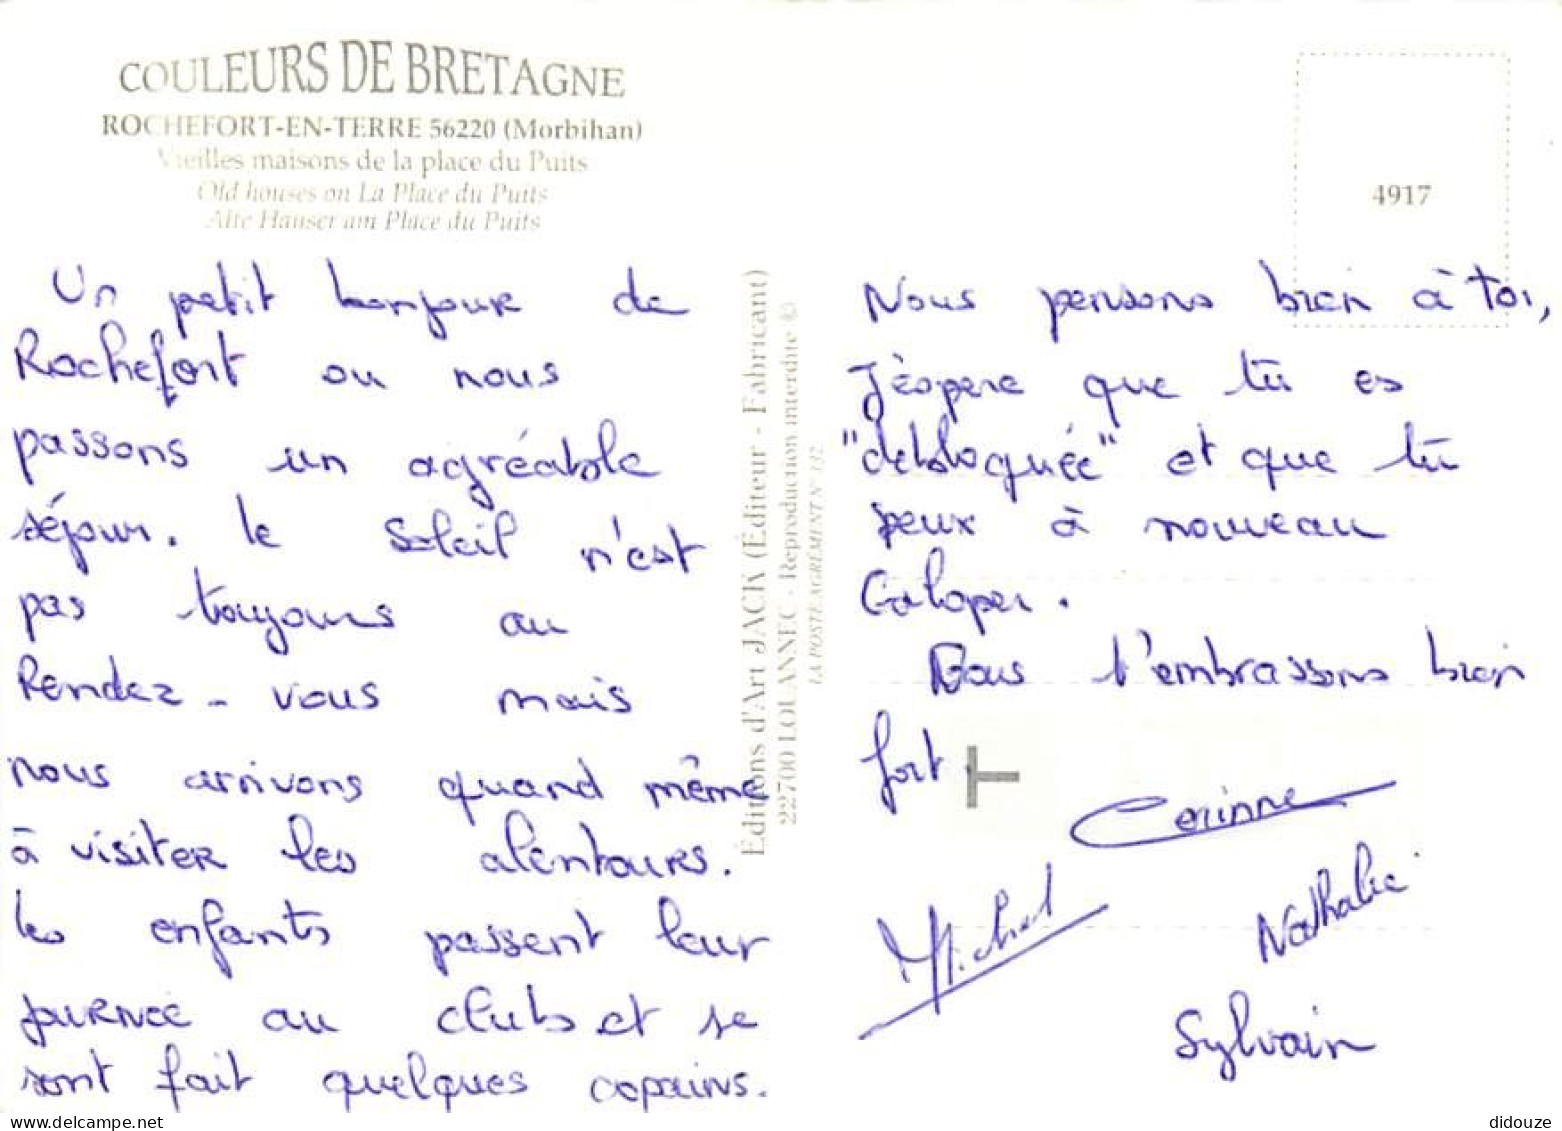 COULEURS DE BRETAGNE
ROCHEFORT-EN-TERRE 56220 (Morbihan)
Vieilles maisons de la place du Puits
Old houses on La Place du Puits
Alte Hauser am Place du Puits
4917
Un petit bonjour de
Rochefort ou nous
passons un agréable
séjour. le soleil n'est
pas toujours au
Rendez-vous mais
nous arrivons quand même
à visiter les alentours.
les enfants passent leur
journée au club et se
sont fait quelques copains.
Éditions d'Art JACK (Éditeur - Fabricant)
22700 LOUANNEC - Reproduction interdite ©
LA POSTE AGRÉMENT N° 132
Nous pensons bien à toi,
J'éspere que tu es
"debloquée" et que tu
peux à nouveau
Galoper.
t'embrassons bien
fort.
T
Corinne
Michel
Nathalie
Sylvain
delcampe.net
didouze